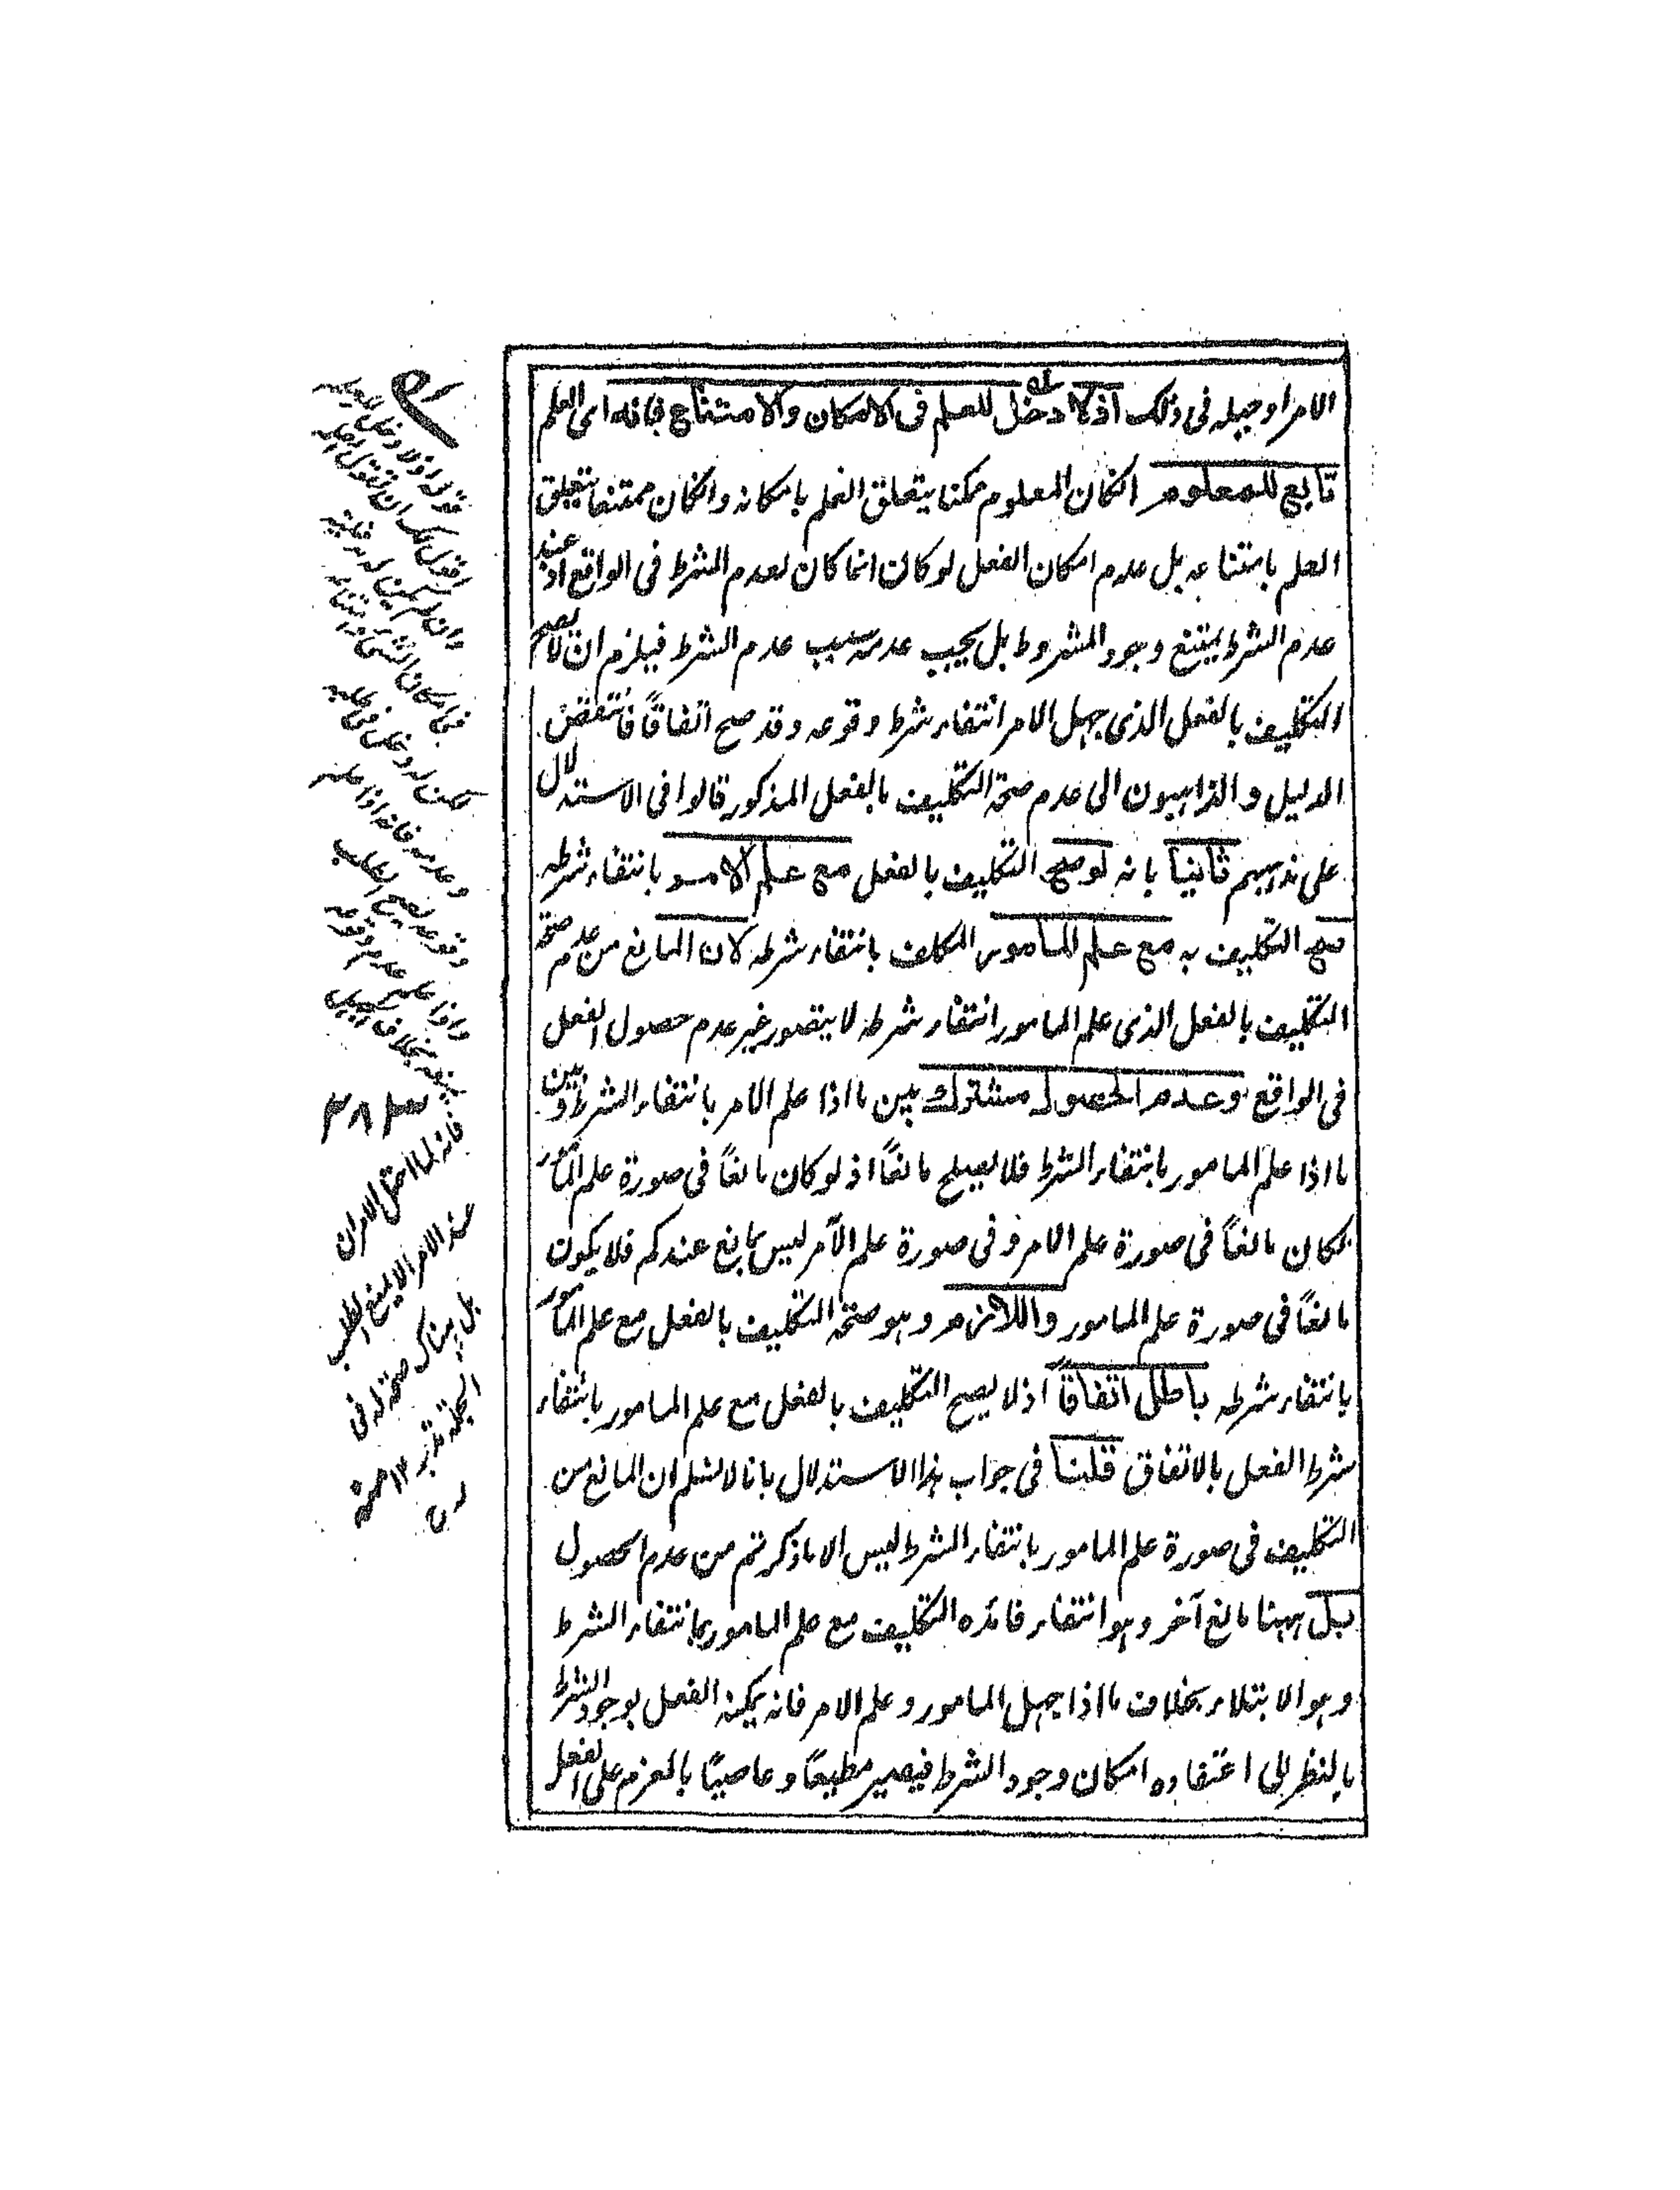 الامر اوجهله فى ذلك اذلا دخل للعلم فى الامكان والامتناع فانه اى العلم
تابع للمعلوم انكان المعلوم ممكنا يتعلق العلم بامكانه وانكان ممتنعا يتعلق
العلم بامتناعه بل عدم امكان الفعل لوكان انما كان لعدم الشرط فى الواقع اذ عند
عدم الشرط يمتنع وجود المشروط بل يجب عدمه بسبب عدم الشرط فيلزم ان لا يصح
التكليف بالفعل الذى جهل الامر انتفاء شرط وقوعه وقد صح اتفاقاً فانتقض
الدليل والذاهبون الى عدم صحة التكليف بالفعل المذكور قالوا فى الاستدلال
على مذهبهم ثانيا بانه لوصح التكليف بالفعل مع علم الامر بانتفاء شرطه
صح التكليف به مع علم المامور المكلف بانتفاء شرطه لان المانع من عدم صحة
التكليف بالفعل الذى علم المامور انتفاء شرطه لا يتصور غير عدم حصول الفعل
فى الواقع وعدم الحصول مشترك بين ما اذا علم الامر بانتفاء الشرط وبين
ما اذا علم المامور بانتفاء الشرط فلا يصلح مانعاً اذ لو كان مانعاً فى صورة علم المامور
لكان مانعاً فى صورة علم الامر وفى صورة علم الآمر ليس بمانع عندكم فلا يكون
مانعاً فى صورة علم المامور واللازم وهو صحة التكليف بالفعل مع علم المامور
بانتفاء شرطه باطل اتفاقاً اذ لا يصح التكليف بالفعل مع علم المامور بانتفاء
شرط الفعل بالاتفاق قلنا فى جواب هذا الاستدلال بانا لا نسلم ان المانع من
التكليف فى صورة علم المامور بانتفاء الشرط ليس الا ما ذكرتم من عدم الحصول
بل ههنا مانع آخر وهو انتفاء فائده التكليف مع علم المامور بانتفاء الشرط
وهو الابتلاء بخلاف ما اذا جهل المامور وعلم الامر فانه يمكنه الفعل بوجود الشرط
بالنظر الى اعتقاده امكان وجود الشرط فيصير مطيعاً وعاصياً بالعزم على الفعل
فانه لما احتمل الامران
عند الامر الا يمنع الطلب
بل هناك صحة له فى
الجملة تدبر ١٢ منه